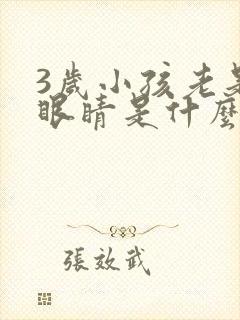 3歲小孩老是
眼睛是什麼
張效武